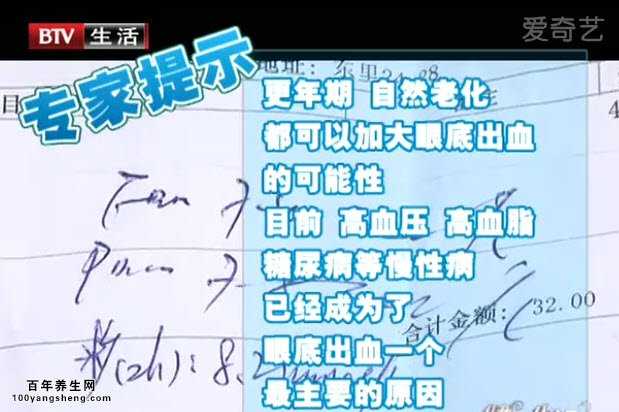 BTV 生活
爱奇艺
专家提示
更年期 自然老化
都可以加大眼底出血
的可能性
目前 高血压 高血脂
糖尿病等慢性病
已经成为了
眼底出血一个
最主要的原因
合计金额: 32.00
百年养生网
100yangsheng.com